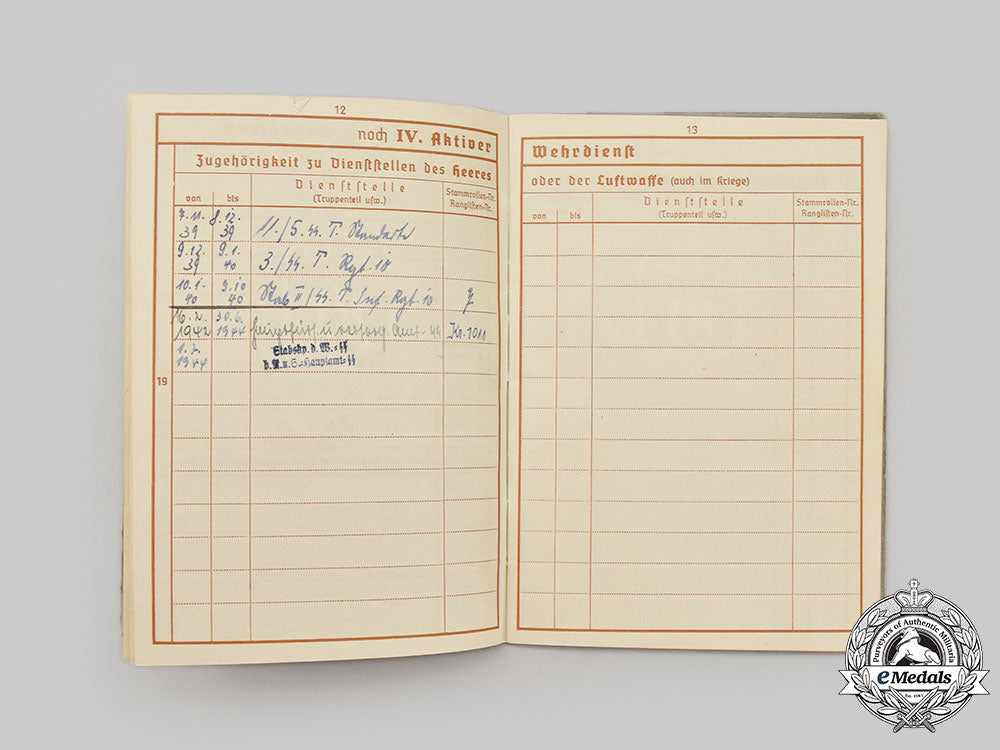 12
noch IV. Aktiver
Zugehörigkeit zu Dienststellen des Heeres
von bis Dienststelle (Truppenteil usw.) Stammrollen-Nr. Ranglisten-Nr.
7.11. 39 8.12. 39 11./5. SS. T. Standarte
9.12. 39 9.1. 40 3./SS. T. Rgt. 10
10.1. 40 9.10 40 Stab II/SS. T. Inf. Rgt. 10
16.2. 1942 30.6. 1944 Kr. 1011
1.7. 1944 Stabskp. d. W.=SS
b. R.u.S.=Hauptamt=SS
19
13
Wehrdienst
oder der Luftwaffe (auch im Kriege)
von bis Dienststelle (Truppenteil usw.) Stammrollen-Nr. Ranglisten-Nr.
Purveyors of Authentic Militaria
eMedals